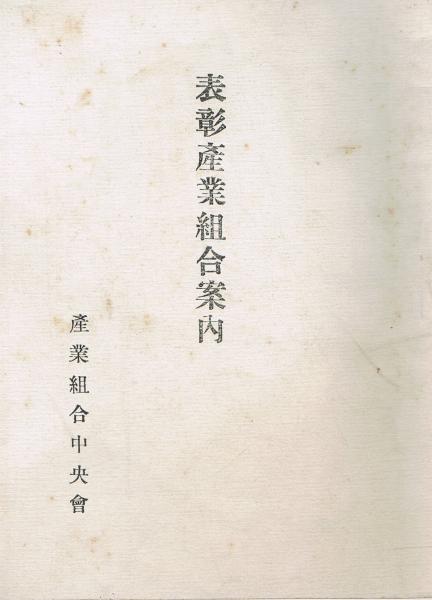 表彰產業組合案内
產業組合中央會